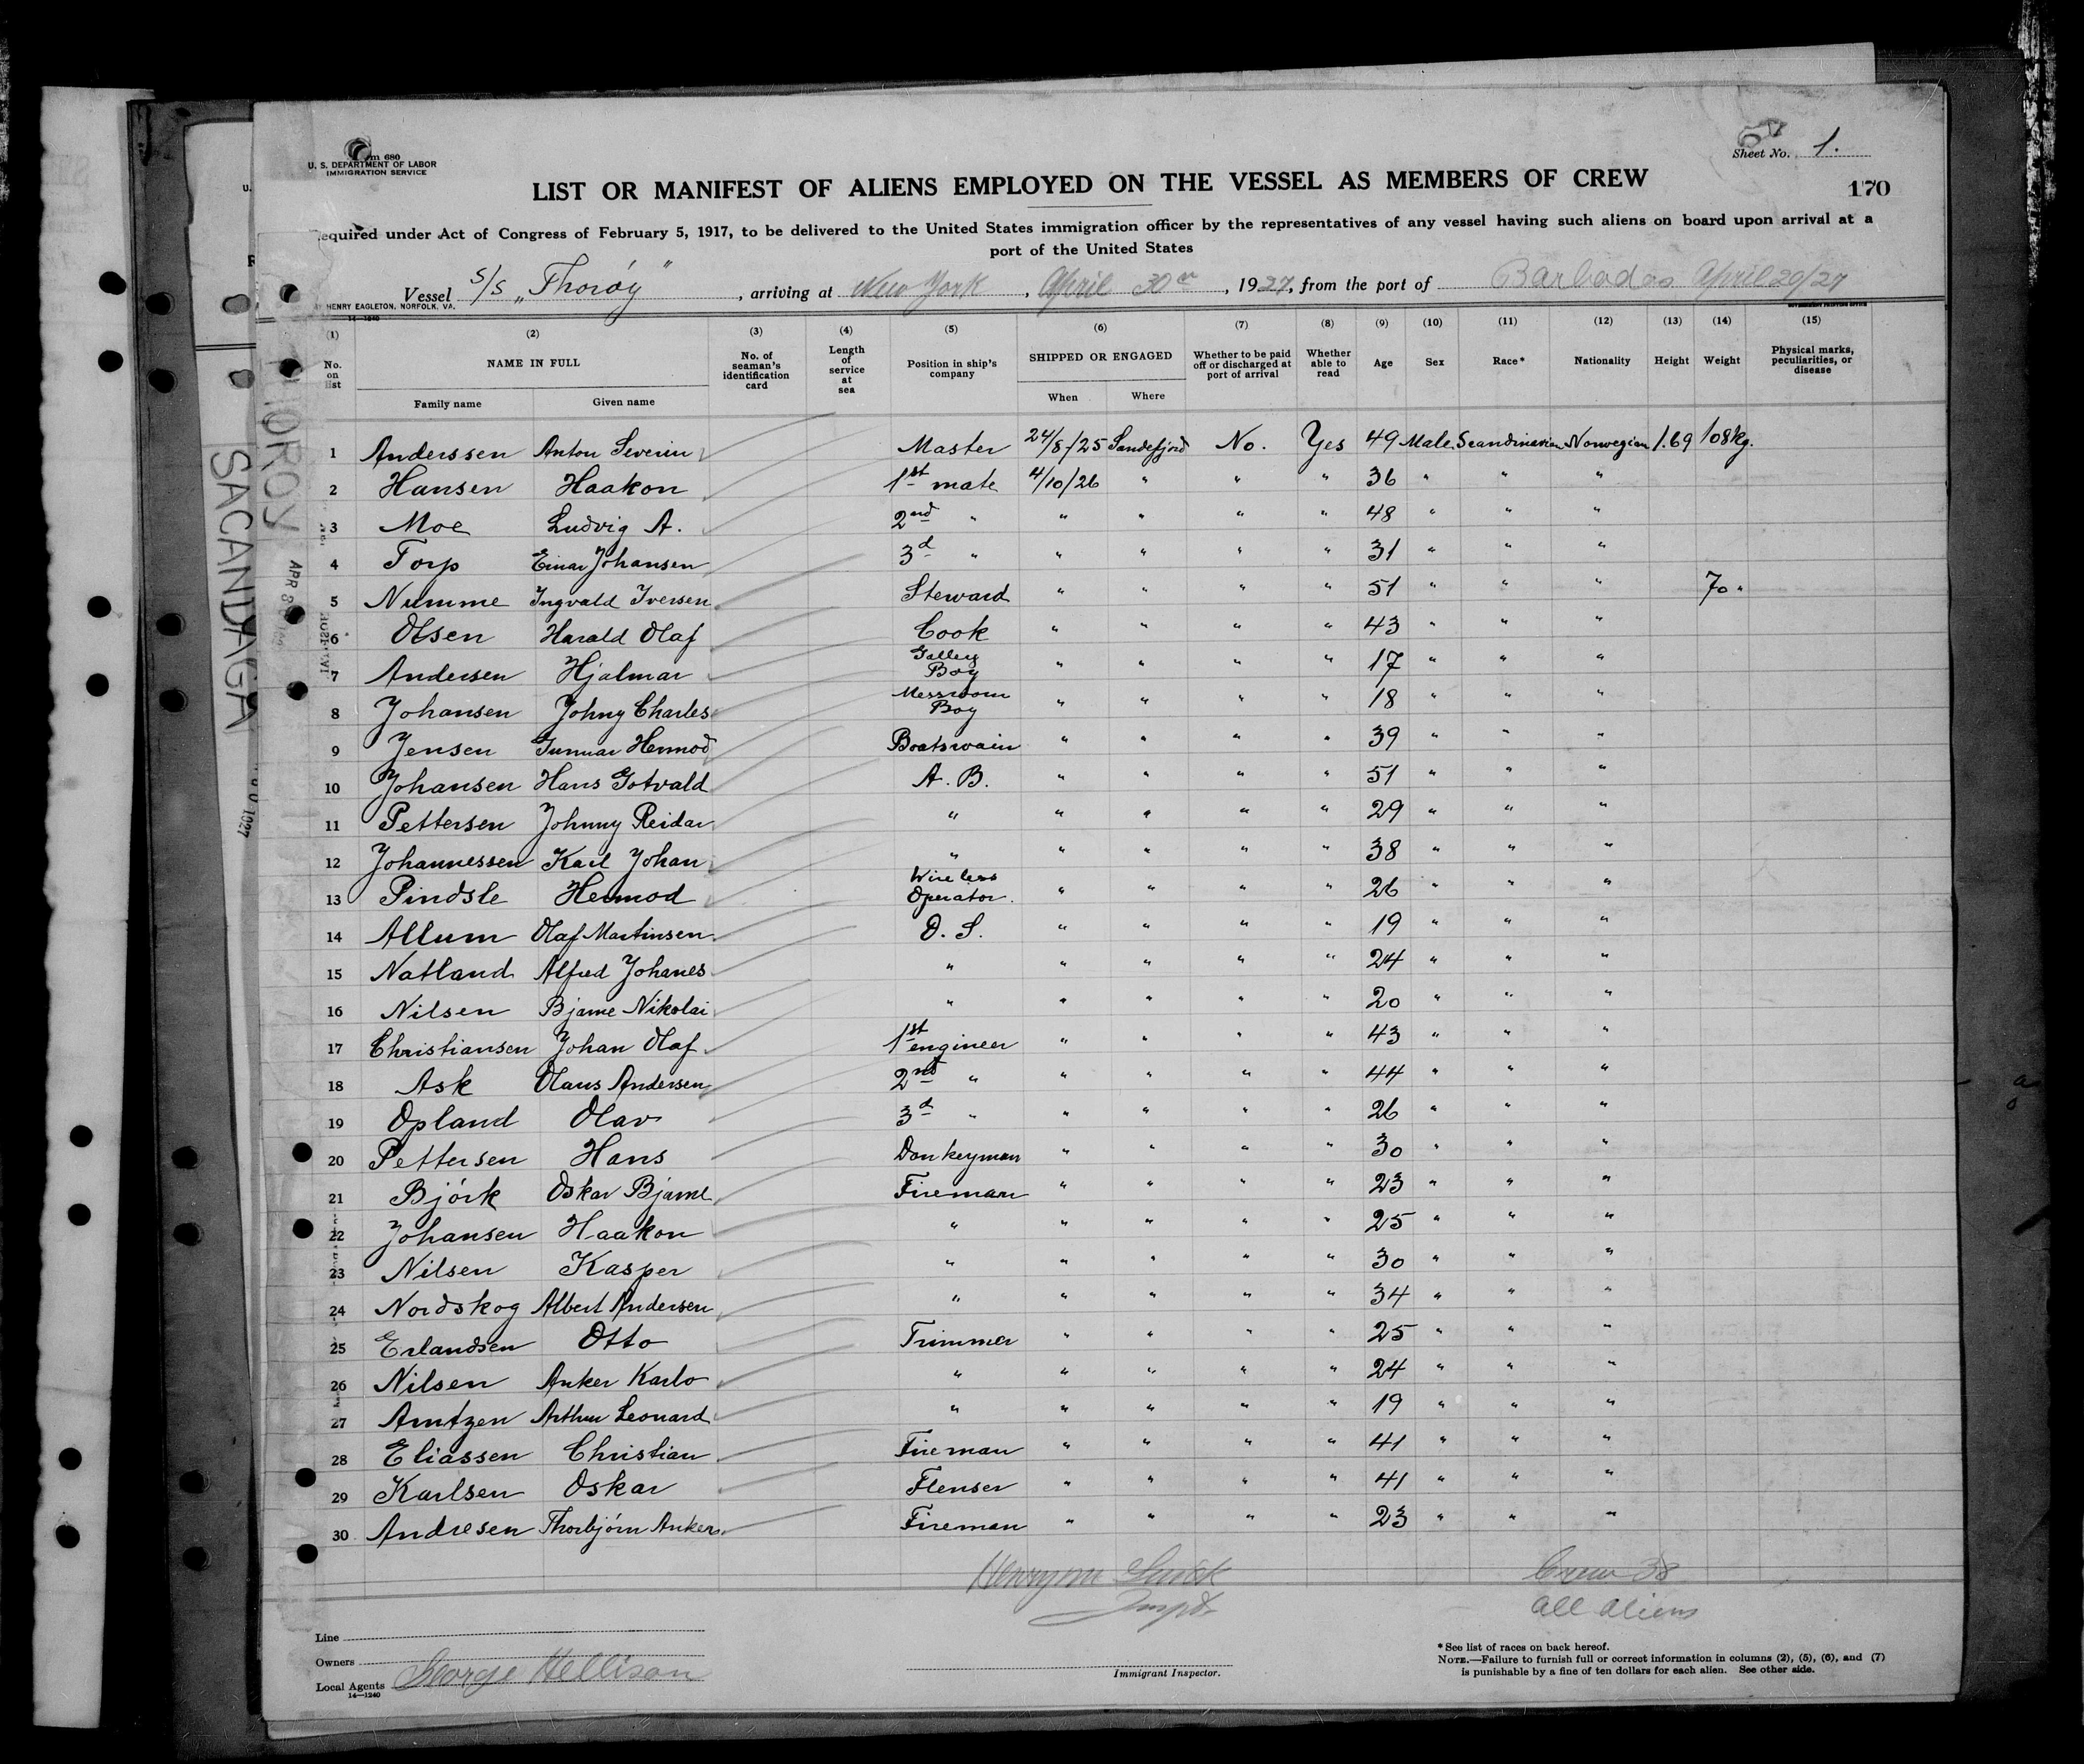 Form 680
U. S. DEPARTMENT OF LABOR
IMMIGRATION SERVICE
Sheet No. 1.
LIST OR MANIFEST OF ALIENS EMPLOYED ON THE VESSEL AS MEMBERS OF CREW
170
Required under Act of Congress of February 5, 1917, to be delivered to the United States immigration officer by the representatives of any vessel having such aliens on board upon arrival at a
port of the United States
Vessel S/S „Thoróy", arriving at New York, April 30th, 1927, from the port of Barbados April 20/27
HENRY EAGLETON, NORFOLK, VA.
14—1240
GOVERNMENT PRINTING OFFICE
(1) (2) (3) (4) (5) (6) (7) (8) (9) (10) (11) (12) (13) (14) (15)
No. on list NAME IN FULL No. of seaman's identification card Length of service at sea Position in ship's company SHIPPED OR ENGAGED Whether to be paid off or discharged at port of arrival Whether able to read Age Sex Race* Nationality Height Weight Physical marks, peculiarities, or disease
Family name Given name When Where
1 Anderssen Anton Severin Master 24/8/25 Sandefjord No. Yes 49 Male Scandinavian Norwegian 1.69 108 kg.
2 Hansen Haakon 1st mate 4/10/26 " " " 36 " " "
3 Moe Ludvig A. 2nd " " " " " 48 " " "
4 Torp Einar Johansen 3d " " " " " 31 " " "
5 Numme Ingvald Iversen Steward " " " " 51 " " " 70 "
6 Olsen Harald Olaf Cook " " " " 43 " " "
7 Andersen Hjalmar Galley Boy " " " " 17 " " "
8 Johansen Johny Charles Messroom Boy " " " " 18 " " "
9 Jensen Gunnar Hermod Boatswain " " " " 39 " " "
10 Johansen Hans Gotvald A. B. " " " " 51 " " "
11 Pettersen Johnny Reidar " " " " " 29 " " "
12 Johannessen Karl Johan " " " " " 38 " " "
13 Pindsle Hermod Wireless Operator. " " " " 26 " " "
14 Allum Olaf Martinsen O. S. " " " " 19 " " "
15 Natland Alfred Johanes " " " " " 24 " " "
16 Nilsen Bjarne Nikolai " " " " " 20 " " "
17 Christiansen Johan Olaf 1st engineer " " " " 43 " " "
18 Ask Olaus Andersen 2nd " " " " " 44 " " "
19 Opland Olav 3d " " " " " 26 " " "
20 Pettersen Hans Donkeyman " " " " 30 " " "
21 Bjórk Oskar Bjarne Fireman " " " " 23 " " "
22 Johansen Haakon " " " " " 25 " " "
23 Nilsen Kasper " " " " " 30 " " "
24 Nordskog Albert Andersen " " " " " 34 " " "
25 Erlandsen Otto Trimmer " " " " 25 " " "
26 Nilsen Anker Karlo " " " " " 24 " " "
27 Arntzen Arthur Leonard " " " " " 19 " " "
28 Eliassen Christian Fireman " " " " 41 " " "
29 Karlsen Oskar Flenser " " " " 41 " " "
30 Andresen Thorbjórn Anker Fireman " " " " 23 " " "
Crew 38
all aliens
Line
Owners
Local Agents George Hellison
14—1240
Immigrant Inspector.
*See list of races on back hereof.
NOTE.—Failure to furnish full or correct information in columns (2), (5), (6), and (7)
is punishable by a fine of ten dollars for each alien. See other side.
SACANDAGA
THOROY